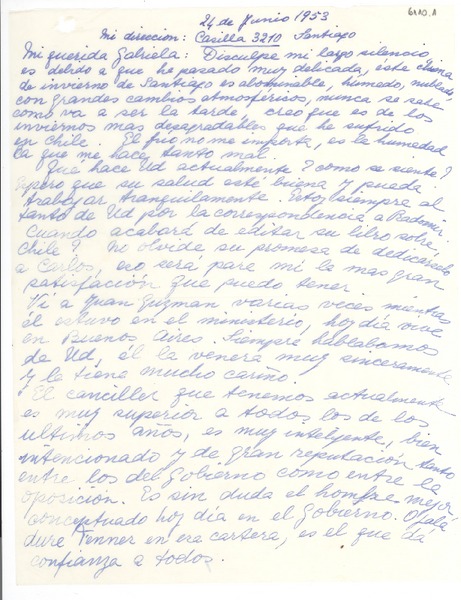 6110.A
24 de Junio 1953
Mi direccion: Casilla 3210 Santiago
Mi querida Gabriela: Disculpe mi largo silencio
es debido a que he pasado muy delicada, este clima
de invierno de Santiago es abominable, humedo, nublado,
con grandes cambios atmosféricos, nunca se sabe
como va a ser la tarde, creo que es de los
inviernos mas desagradables que he sufrido
en Chile. El frio no me importa, es la humedad
la que me hace tanto mal.
Que hace Ud actualmente? como se siente?
Espero que su salud esté buena y pueda
trabajar tranquilamente. Estoy siempre al
tanto de Ud por la correspondencia a
Cuando acabará de editar su libro sobre
Chile? No olvide su promesa de dedicarselo
a Carlos, eso será para mi la mas gran
satisfacción que puedo tener.
Vi a Juan Guzman varias veces mientras
él estuvo en el ministerio, hoy dia vive
en Buenos Aires. Siempre hablabamos
de Ud, él la venera muy sinceramente
y le tiene mucho cariño.
El canciller que tenemos actualmente
es muy superior a todos los de los
ultimos años, es muy inteligente, bien
intencionado y de gran reputación tanto
entre los del Gobierno como entre la
oposición. Es sin duda el hombre mejor
conceptuado hoy dia en el Gobierno. Ojalá
dure Fenner en esa cartera, es el que da
confianza a todos.